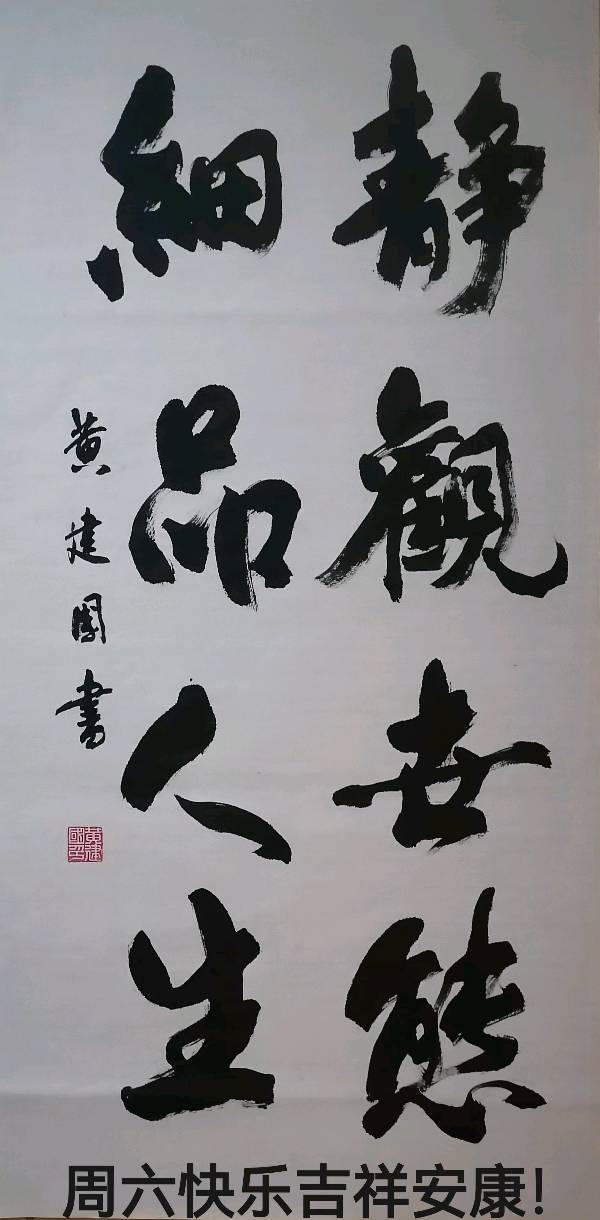 靜觀世態
細品人生
黄建國書
黄建國印
周六快乐吉祥安康!